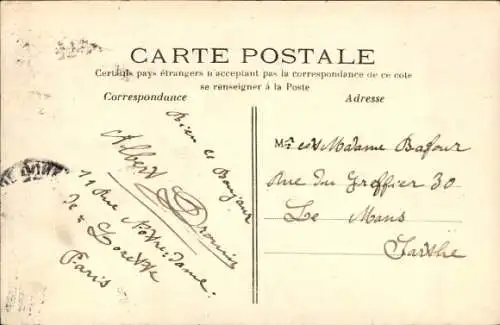 CARTE POSTALE
Certains pays étrangers n'acceptant pas la correspondance de ce côté
se renseigner à la Poste
Correspondance
Adresse
Bien le Bonjour
Albert
11 Rue Notre-Dame
de Lorette
Paris
Mr et Madame Bafour
Rue du Greffier 30
Le Mans
Sarthe